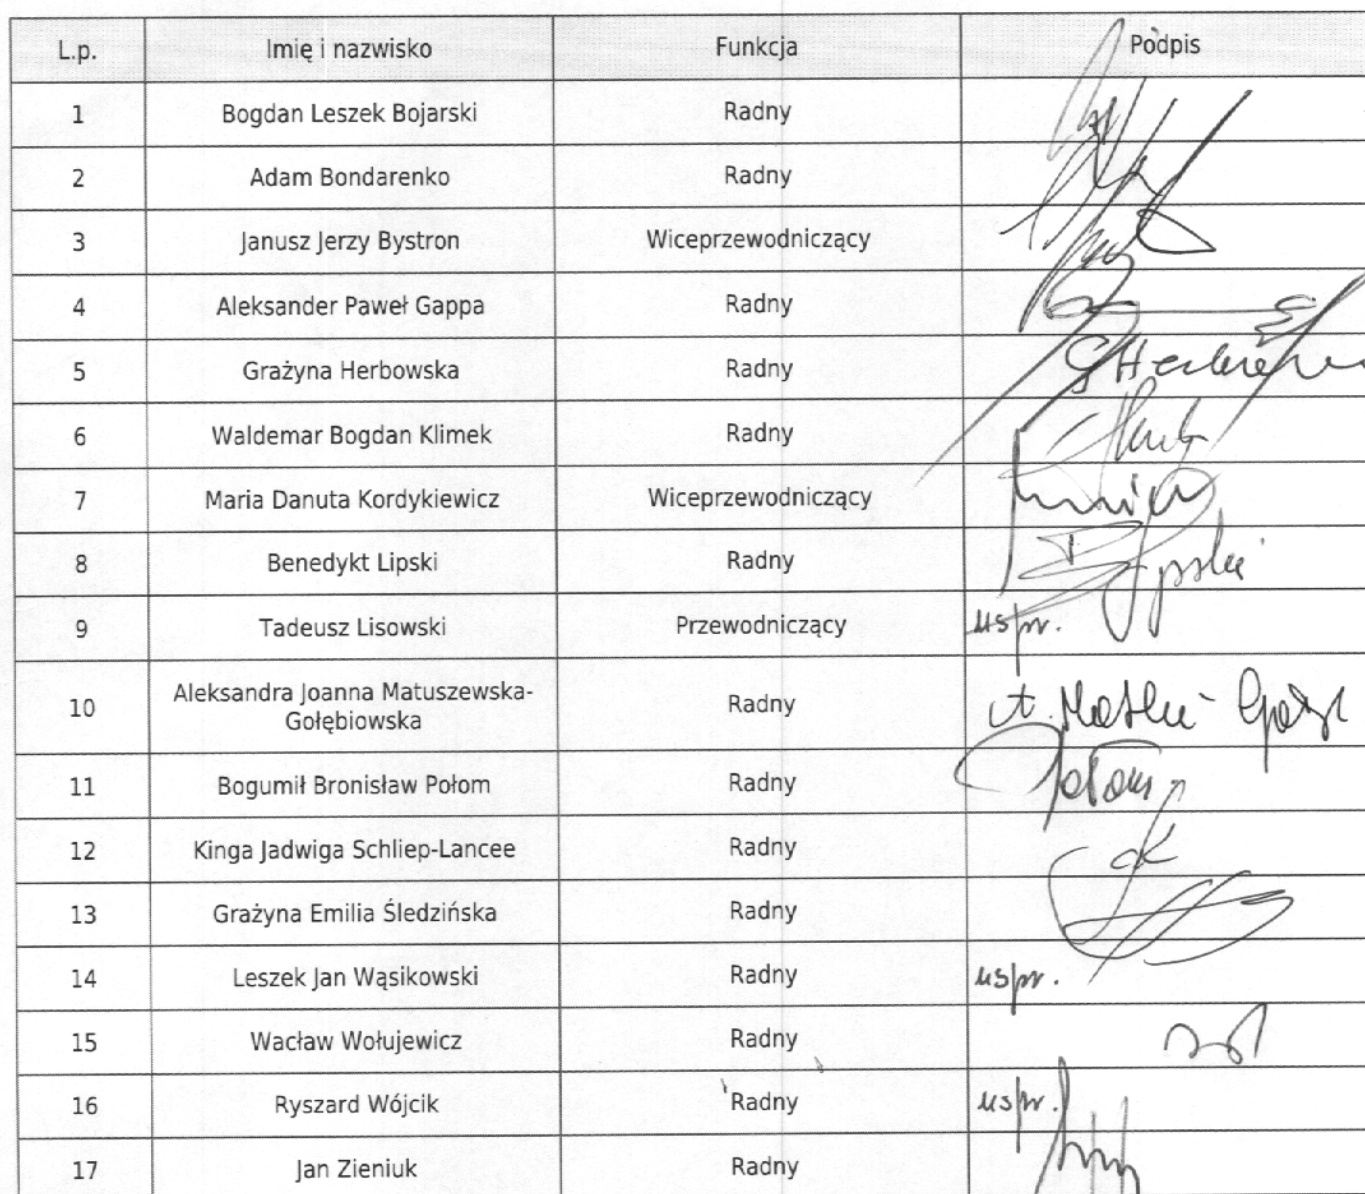 L.p. Imię i nazwisko Funkcja Podpis
1 Bogdan Leszek Bojarski Radny
2 Adam Bondarenko Radny
3 Janusz Jerzy Bystron Wiceprzewodniczący
4 Aleksander Paweł Gappa Radny
5 Grażyna Herbowska Radny
6 Waldemar Bogdan Klimek Radny
7 Maria Danuta Kordykiewicz Wiceprzewodniczący
8 Benedykt Lipski Radny
9 Tadeusz Lisowski Przewodniczący uspr.
10 Aleksandra Joanna Matuszewska-
Gołębiowska Radny
11 Bogumił Bronisław Połom Radny Połom
12 Kinga Jadwiga Schliep-Lancee Radny
13 Grażyna Emilia Śledzińska Radny
14 Leszek Jan Wąsikowski Radny uspr.
15 Wacław Wołujewicz Radny
16 Ryszard Wójcik Radny uspr.
17 Jan Zieniuk Radny